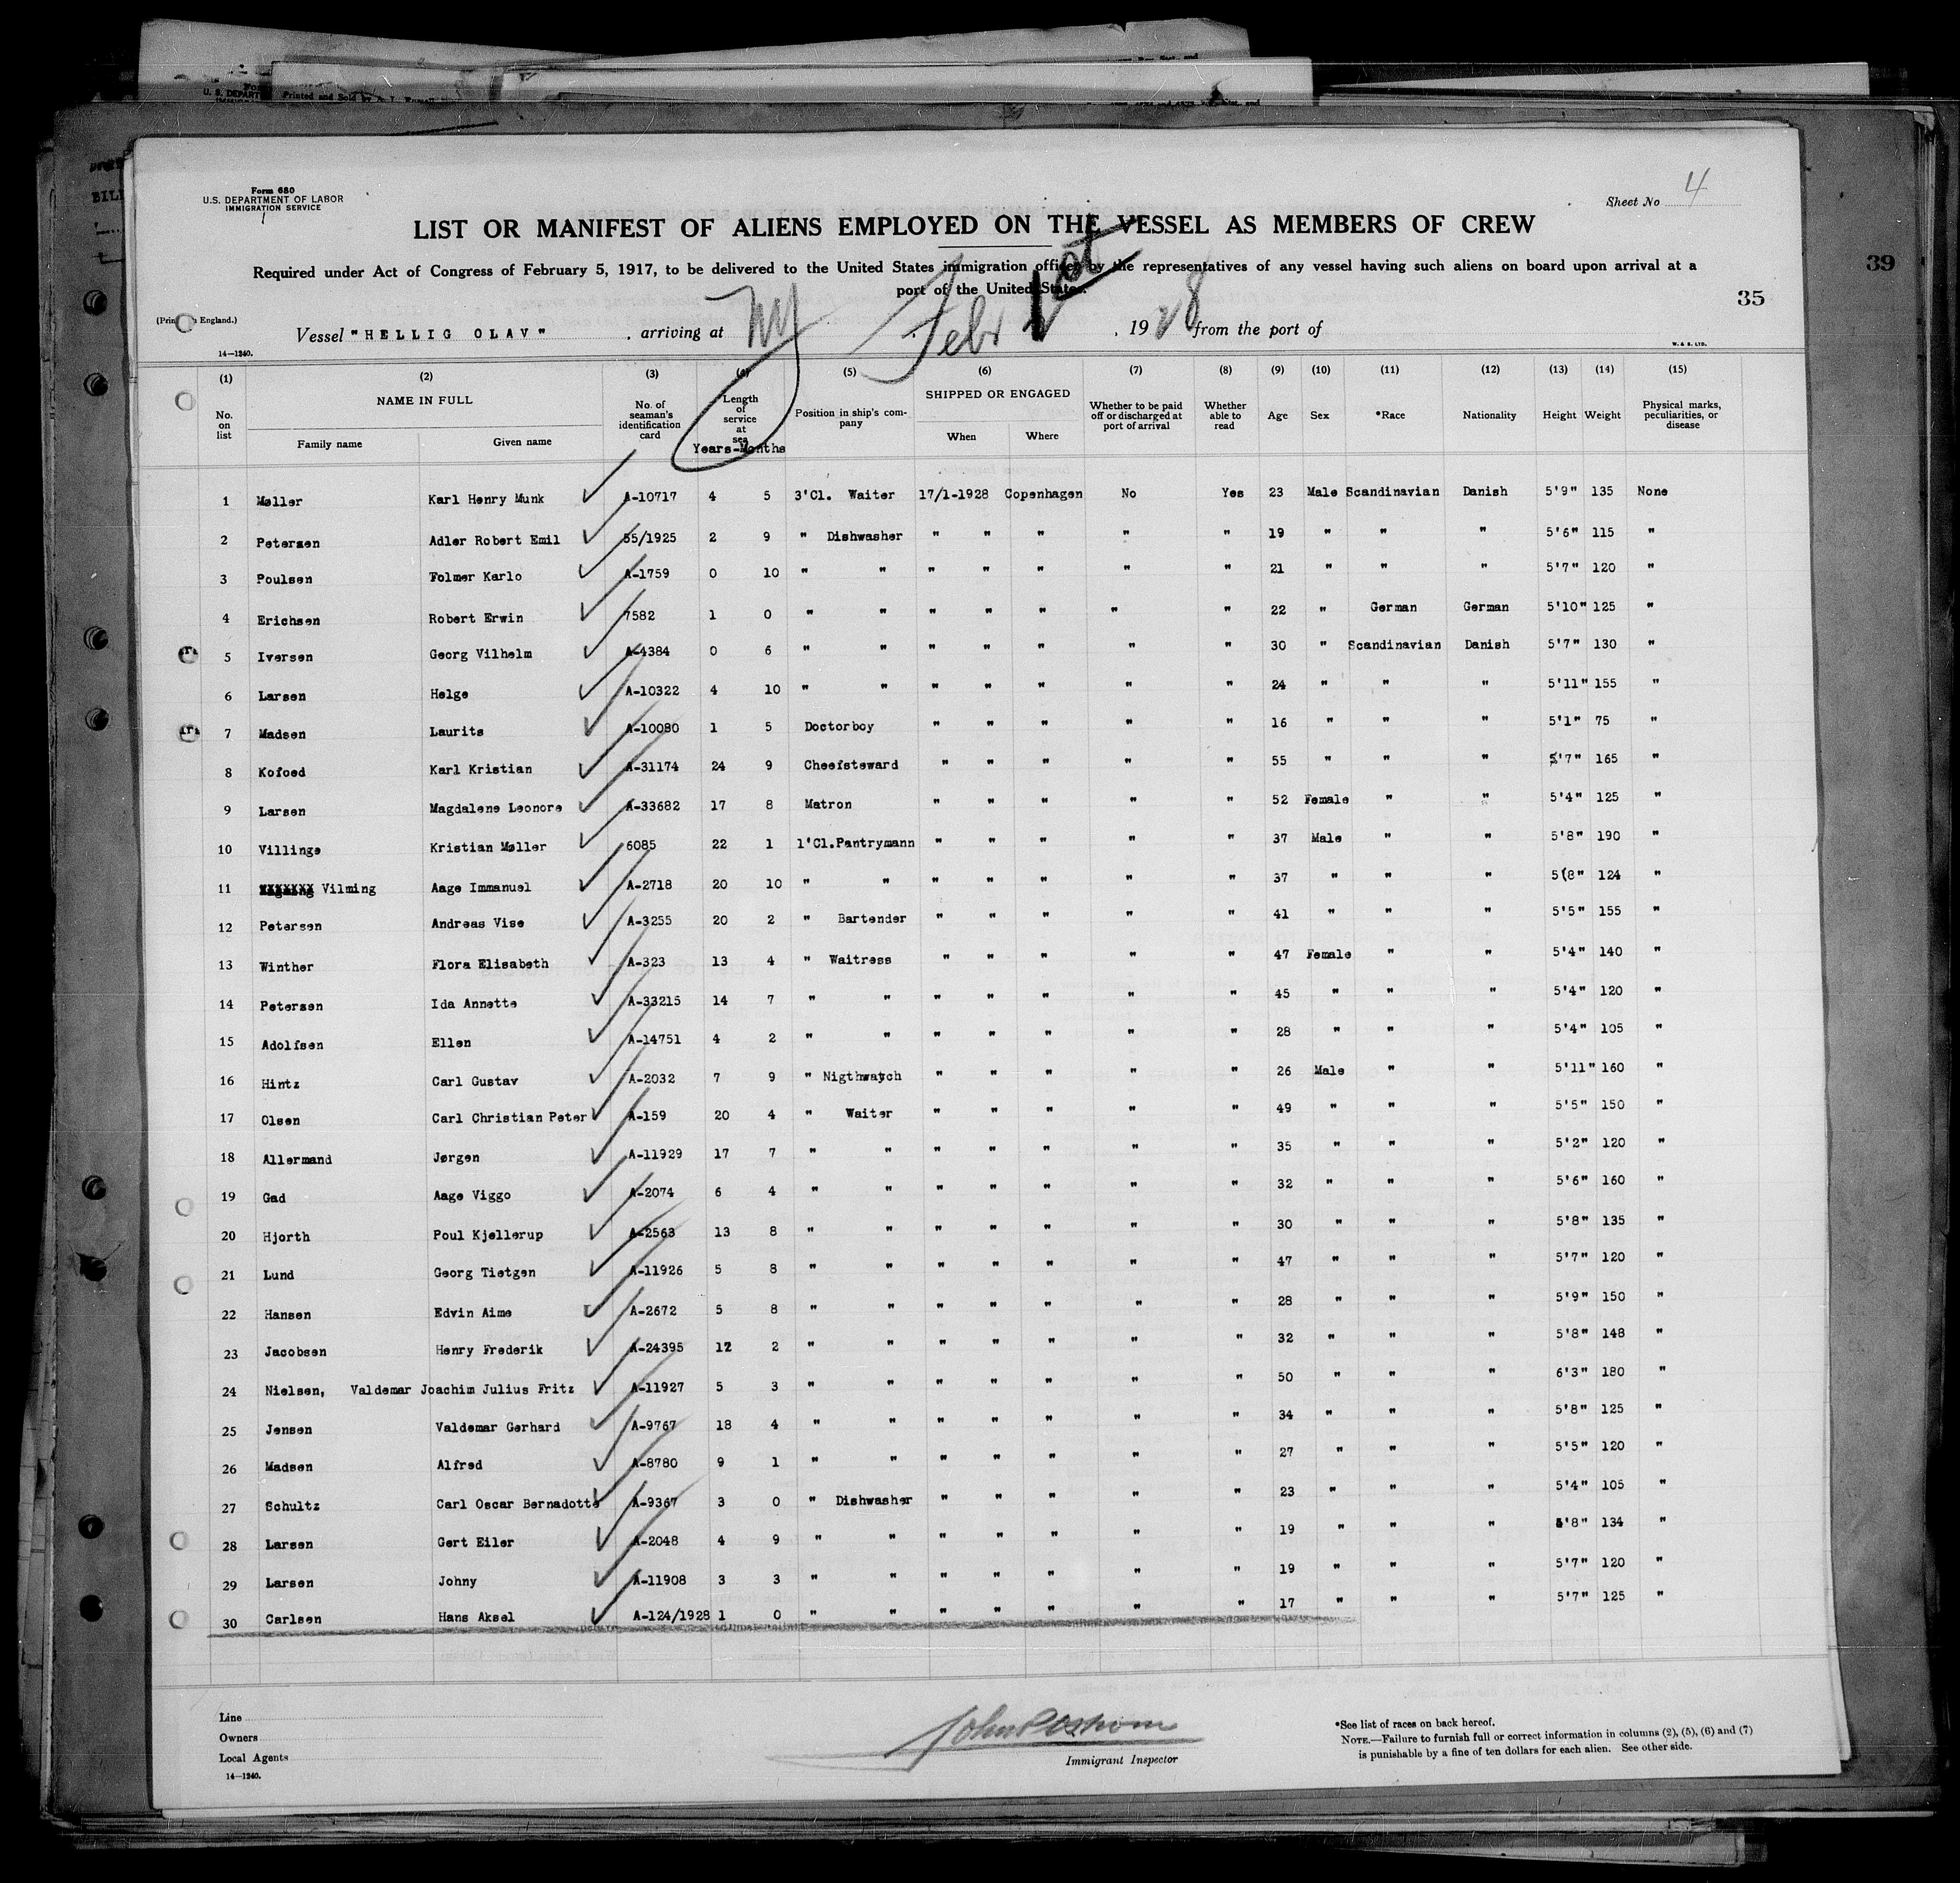 Form 680
U.S. DEPARTMENT OF LABOR
IMMIGRATION SERVICE
Sheet No 4
LIST OR MANIFEST OF ALIENS EMPLOYED ON THE VESSEL AS MEMBERS OF CREW
Required under Act of Congress of February 5, 1917, to be delivered to the United States immigration officer by the representatives of any vessel having such aliens on board upon arrival at a
port of the United States.
39
35
Vessel "HELLIG OLAV", arriving at NY, Febr 1st, 1928 from the port of
14—1240.
W. & S. LTD.
(1) (2) (3) (4) (5) (6) (7) (8) (9) (10) (11) (12) (13) (14) (15)
No. on list NAME IN FULL Family name Given name No. of seaman's identification card Length of service at sea Years-Months Position in ship's company SHIPPED OR ENGAGED When Where Whether to be paid off or discharged at port of arrival Whether able to read Age Sex *Race Nationality Height Weight Physical marks, peculiarities, or disease
1 Møller Karl Henry Munk A-10717 4 5 3'Cl. Waiter 17/1-1928 Copenhagen No Yes 23 Male Scandinavian Danish 5'9" 135 None
2 Petersen Adler Robert Emil 55/1925 2 9 " Dishwasher " " " " " 19 " " " 5'6" 115 "
3 Poulsen Folmer Karlo A-1759 0 10 " " " " " " " 21 " " " 5'7" 120 "
4 Erichsen Robert Erwin 7582 1 0 " " " " " " " 22 " German German 5'10" 125 "
5 Iversen Georg Vilhelm A-4384 0 6 " " " " " " " 30 " Scandinavian Danish 5'7" 130 "
6 Larsen Helge A-10322 4 10 " " " " " " " 24 " " " 5'11" 155 "
7 Madsen Laurits A-10080 1 5 Doctorboy " " " " " 16 " " " 5'1" 75 "
8 Kofoed Karl Kristian A-31174 24 9 Cheefsteward " " " " " 55 " " " 5'7" 165 "
9 Larsen Magdalene Leonore A-33682 17 8 Matron " " " " " 52 Female " " 5'4" 125 "
10 Villinge Kristian Møller 6085 22 1 1'Cl.Pantrymann " " " " " 37 Male " " 5'8" 190 "
11 Vilming Aage Immanuel A-2718 20 10 " " " " " " " 37 " " " 5(8" 124 "
12 Petersen Andreas Vise A-3255 20 2 " Bartender " " " " " 41 " " " 5'5" 155 "
13 Winther Flora Elisabeth A-323 13 4 " Waitress " " " " " 47 Female " " 5'4" 140 "
14 Petersen Ida Annette A-33215 14 7 " " " " " " " 45 " " " 5'4" 120 "
15 Adolfsen Ellen A-14751 4 2 " " " " " " " 28 " " " 5'4" 105 "
16 Hintz Carl Gustav A-2032 7 9 " Nigthwatch " " " " " 26 Male " " 5'11" 160 "
17 Olsen Carl Christian Peter A-159 20 4 " Waiter " " " " " 49 " " " 5'5" 150 "
18 Allermand Jørgen A-11929 17 7 " " " " " " " 35 " " " 5'2" 120 "
19 Gad Aage Viggo A-2074 6 4 " " " " " " " 32 " " " 5'6" 160 "
20 Hjorth Poul Kjellerup A-2563 13 8 " " " " " " " 30 " " " 5'8" 135 "
21 Lund Georg Tietgen A-11926 5 8 " " " " " " " 47 " " " 5'7" 120 "
22 Hansen Edvin Aime A-2672 5 8 " " " " " " " 28 " " " 5'9" 150 "
23 Jacobsen Henry Frederik A-24395 12 2 " " " " " " " 32 " " " 5'8" 148 "
24 Nielsen, Valdemar Joachim Julius Fritz A-11927 5 3 " " " " " " " 50 " " " 6'3" 180 "
25 Jensen Valdemar Gerhard A-9767 18 4 " " " " " " " 34 " " " 5'8" 125 "
26 Madsen Alfred A-8780 9 1 " " " " " " " 27 " " " 5'5" 120 "
27 Schultz Carl Oscar Bernadotte A-9367 3 0 " Dishwasher " " " " " 23 " " " 5'4" 105 "
28 Larsen Gert Eiler A-2048 4 9 " " " " " " " 19 " " " 5'8" 134 "
29 Larsen Johny A-11908 3 3 " " " " " " " 19 " " " 5'7" 120 "
30 Carlsen Hans Aksel A-124/1928 1 0 " " " " " " " 17 " " " 5'7" 125 "
Line
Owners
Local Agents
14—1240.
Immigrant Inspector
*See list of races on back hereof.
NOTE.—Failure to furnish full or correct information in columns (2), (5), (6) and (7)
is punishable by a fine of ten dollars for each alien. See other side.